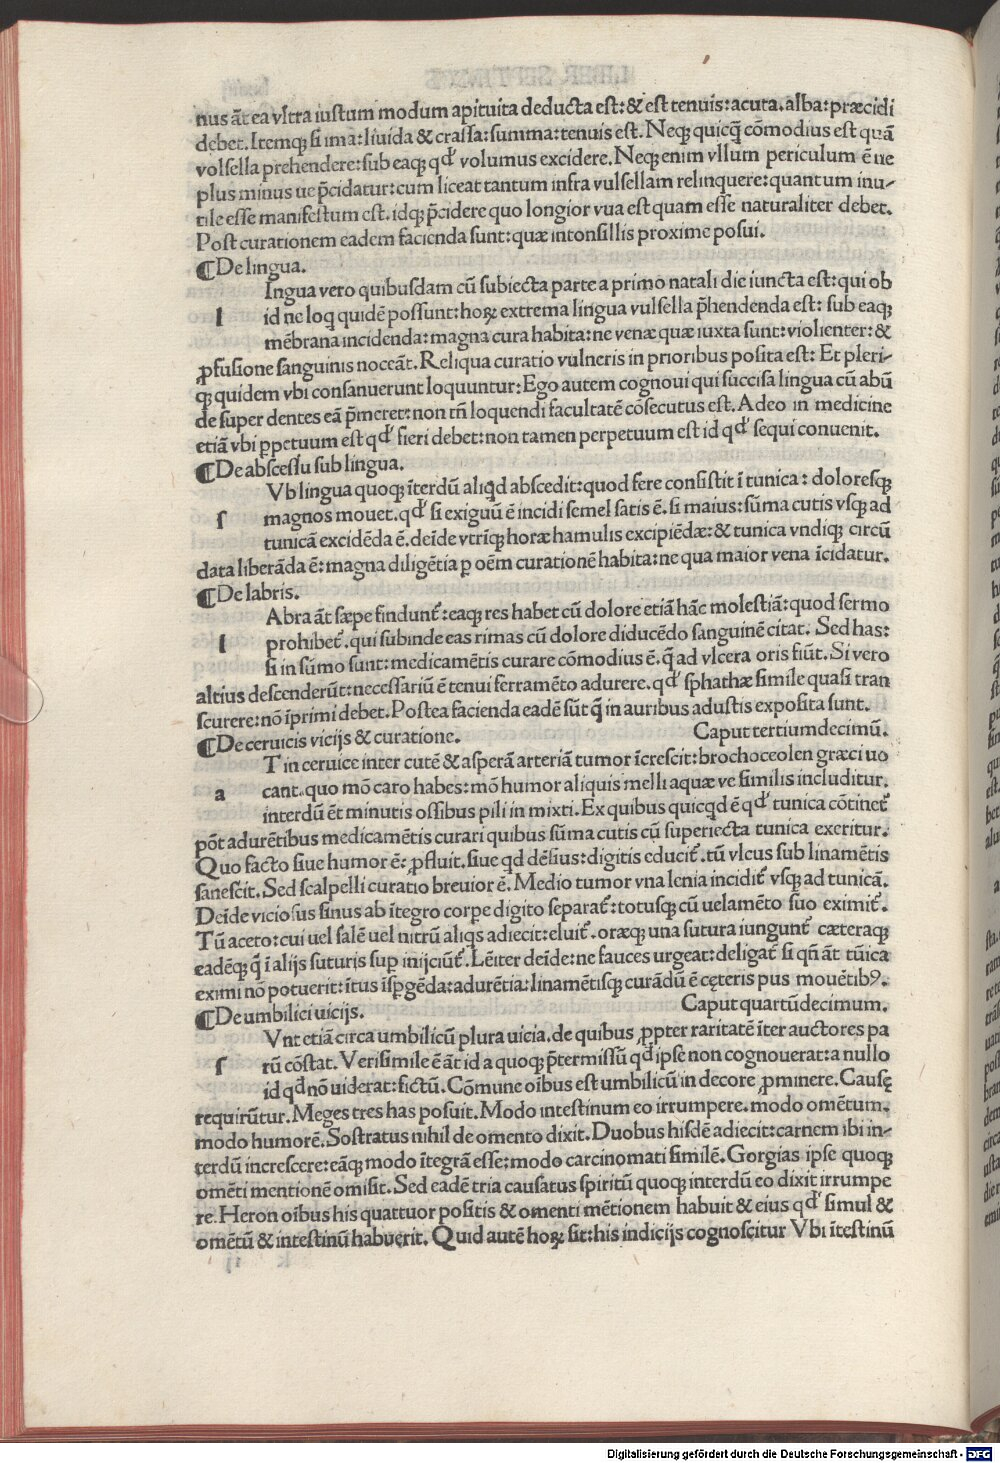 nus āt ea vltra iustum modum apituita deducta est: & est tenuis: acuta. alba: præcidi
debet. Itemq; si ima: liuida & crassa: summa: tenuis est. Neq; quicq̄ cōmodius est quā
volsella prehendere: sub eaq; qd' volumus excidere. Neq; enim vllum periculum ē ne
plus minus ue p̄cidatur: cum liceat tantum infra vulsellam relinquere: quantum inu-
tile esse manifestum est. idq; p̄cidere quo longior vua est quam esse naturaliter debet.
Post curationem eadem facienda sunt: quæ intonsillis proxime posui.
¶De lingua.
Ingua vero quibusdam cū subiecta parte a primo natali die iuncta est: qui ob
l id ne loq̄ quidē possunt: hoꝝ extrema lingua vulsella p̄hendenda est: sub eaq;
mēbrana incidenda: magna cura habita: ne venæ quæ iuxta sunt: violienter: &
ꝓfusione sanguinis noceāt. Reliqua curatio vulneris in prioribus posita est: Et pleri-
q; quidem vbi consanuerunt loquuntur: Ego autem cognoui qui succisa lingua cū abū
de super dentes eā p̄meret: non tn̄ loquendi facultatē cōsecutus est. Adeo in medicine
etiā vbi ꝑpetuum est qd' fieri debet: non tamen perpetuum est id qd' sequi conuenit.
¶De abscessu sub lingua.
Vb lingua quoq; īterdū aliqd abscedit: quod fere consistit ī tunica: doloresq;
s magnos mouet. qd' si exiguū ē incidi semel satis ē. si maius: sūma cutis vsq; ad
tunicā excidēda ē. deīde vtrīq; horæ hamulis excipiēdæ: & tunica vndiq; circū
data liberāda ē: magna diligētia ꝑ oēm curationē habita: ne qua maior vena īcidatur.
¶De labris.
Abra āt sæpe findunt': eaq; res habet cū dolore etiā hāc molestiā: quod sermo
l prohibet'. qui subinde eas rimas cū dolore diducēdo sanguinē citat. Sed has:
si in sūmo sunt: medicamētis curare cōmodius ē. q̄ ad vlcera oris fiūt. Si vero
altius descenderūt: necessariū ē tenui ferramēto adurere. qd' sphathæ simile quasi tran
scurere: nō īprimi debet. Postea facienda eadē sūt q̄ in auribus adustis exposita sunt.
¶De ceruicis vicijs & curatione. Caput tertiumdecimū.
T in ceruice inter cutē & asperā arteriā tumor īcrescit: brochoceolen græci uo
a cant. quo mō caro habes: mō humor aliquis melli aquæ ve similis includitur.
interdū ēt minutis ossibus pili in mixti. Ex quibus quicqd ē qd' tunica cōtinet'
pōt adurētibus medicamētis curari quibus sūma cutis cū superiecta tunica exeritur.
Quo facto siue humor ē: ꝓfluit. siue qd dēsius: digitis educit'. tū vlcus sub linamētis
sanescit. Sed scalpelli curatio breuior ē. Medio tumor vna lenia incidit' vsq; ad tunicā.
Deīde viciosus sinus ab ītegro corpe digito separat': totusq; cū uelamēto suo eximit'.
Tū aceto: cui uel salē uel nitrū aliqs adiecit: eluit'. oræq; una sutura iungunt' cæteraq;
eadēq; q̄ ī alijs suturis sup inijciūt'. Lēiter deīde: ne fauces urgeat: deligat' si qn̄ āt tūica
eximi nō potuerit: ītus īspgēda: adurētia: linamētisq; curādū ē cęteris pus mouētibꝰ.
¶De umbilici uicijs. Caput quartūdecimum.
Vnt etiā circa umbilicū plura uicia. de quibus ꝓpter raritatē īter auctores pa
s rū cōstat. Verisimile ē āt id a quoq; p̄termissū qd ipse non cognouerat: a nullo
id qd nō uiderat: fictū. Cōmune oībus est umbilicū in decore ꝓminere. Causę
requirūtur. Meges tres has posuit. Modo intestinum eo irrumpere. modo omētum.
modo humorē. Sostratus nihil de omento dixit. Duobus hisdē adiecit: carnem ibi in-
terdū increscere: eāq; modo ītegrā esse: modo carcinomati similē. Gorgias ipse quoq;
omēti mentionē omisit. Sed eadē tria causatus spiritū quoq; interdū eo dixit irrumpe
re. Heron oībus his quattuor positis & omenti mētionem habuit & eius qd' simul &
omētū & intestinū habuerit. Quid autē hoꝝ sit: his indicijs cognoscitur Vbi ītestinū
Digitalisierung gefördert durch die Deutsche Forschungsgemeinschaft - DFG